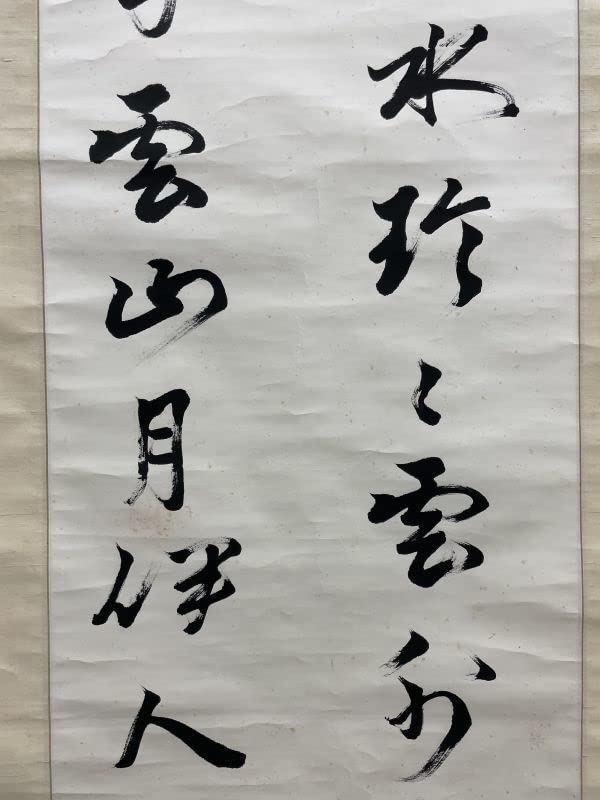 水玲々雲外
雲山月伴人